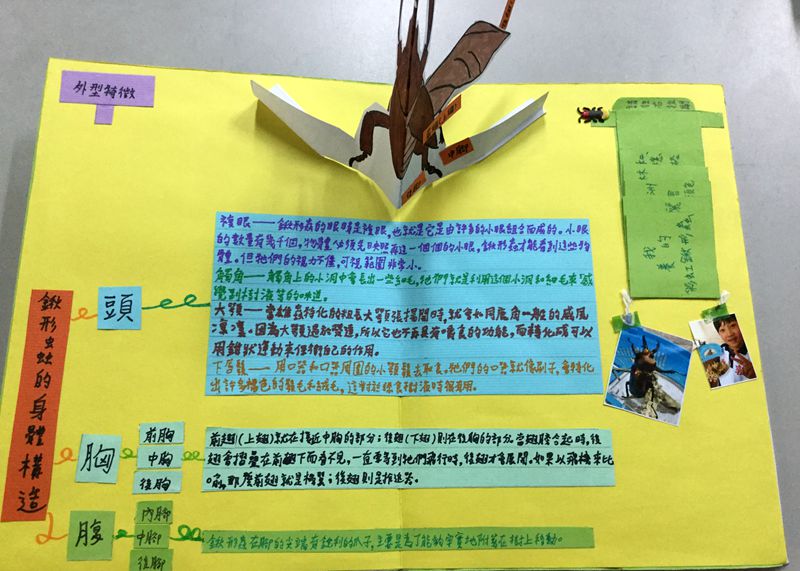 外型特徵
中腳
鍬形虫虫的身體構造
頭
複眼——鍬形蟲的眼睛是複眼,也就是它是由許多的小眼組合而成的。小眼
的數量有幾千個,物體必須先映照再這一個個的小眼,鍬形蟲才能看到這些物
體。但牠們的視力不佳,可視範圍非常小。
觸角——觸角上的小洞中會長出一些細毛,牠們就是利用這個小洞和細毛來感
覺到樹液等的味道。
大顎——當雄蟲特化的粗長大顎張揚開時,就會如同鹿角一般的威風
凜凜。因為大顎過於發達,所以它也不再具有嚼食的功能,而轉化成可以
用鉗狀運動來保衛自己的作用。
下唇鬚——用口器和口器周圍的小顎鬚去取食。牠們的口器就像刷子,會特化
出許多橘色的鬚毛和絨毛,這對於採食樹液時很有用。
胸
前胸
中胸
後胸
前翅(上翅)就在接近中胸的部分;後翅(下翅)則在後胸的部分。當翅膀合起時,後
翅會摺疊在前翅下而看不見,一直要等到牠們飛行時,後翅才會展開。如果以飛機來比
喻,那麼前翅就是機翼;後翅則是推進器。
腹
內腳
中腳
後腳
鍬形蟲在腳的尖端有銳利的爪子,主要是為了能夠牢實地附著在樹上移動。
我的
鍬形蟲